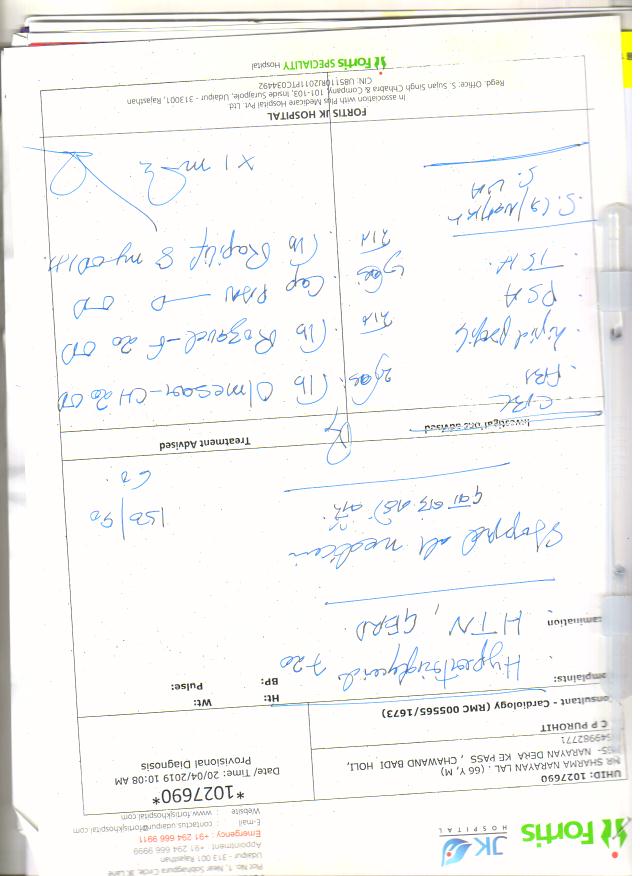 Fortis
JK
HOSPITAL
Plot No. 1, Near Sobhagpura Circle, 3K Lane
Udaipur - 313 001 Rajasthan
Appointment : +91 294 666 9999
Emergency : +91 294 666 9911
E-mail : contactus.udaipur@fortisjkhospital.com
Website : www.fortisjkhospital.com
UHID: 1027690
MR SHARMA NARAYAN LAL . (66 Y, (M)
NARAYAN DERA KE PASS , CHAWAND BADI HOLI,
9549982771
C P PUROHIT
Consultant - Cardiology (RMC 005565/1673)
*1027690*
Date/ Time: 20/04/2019 10:08 AM
Provisional Diagnosis
Ht: Wt:
BP: Pulse:
omplaints:
Hypertriglycerid 720
amination
HTN, GERD
Stopped all medicin
150/90
Treatment Advised
CBC
FBS
Lipid profile
PSA
TSH
Tb Olmesar-CH 20 OD
Tb Rozavel-F 20 OD
Cap PAN - D OD
Tb Rapilif 8 mg OD
x 1 m
FORTIS JK HOSPITAL
In association with Plus Medicare Hospital Pvt. Ltd.
Regd. Office: S. Sujan Singh Chhabra & Company, 101-103, Inside Surajpole, Udaipur - 313001, Rajasthan
CIN: U85110RJ2011PTC034492
Fortis SPECIALITY Hospital